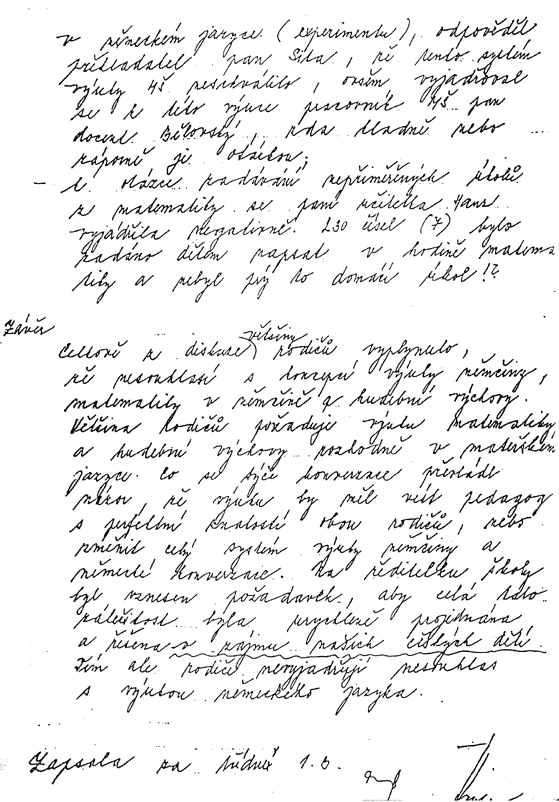 v německém jazyce (experimentu), odpověděl
překladatel pan Síla, že tento systém
výuky MŠ neschválilo, ovšem vyjadřoval
se k této výuce pracovník MŠ pan
docent Bělovský, zda kladně nebo
záporně je otázkou;
– k otázce zadávání nepřiměřených úkolů
z matematiky se paní učitelka
vyjádřila negativně. 230 čísel (7) bylo
zadáno dětem napsat v hodině matema
tiky a nebyl prý to domácí úkol!?
Závěr
Celkově z diskuse většiny rodičů vyplynulo,
že nesouhlasí s koncepcí výuky němčiny,
matematiky v němčině a hudební výchovy.
Většina rodičů požaduje výuku matematiky
a hudební výchovy rozhodně v mateřském
jazyce. Co se týče konverzace převládá
názor, že výuku by měl vést pedagog
s perfektní znalostí obou rodičů, nebo
změnit celý systém výuky němčiny a
německé konverzace. Na ředitelku školy
byl vznesen požadavek, aby celá tato
záležitost byla urychleně projednána
a řešena v zájmu našich českých dětí.
Tím ale rodiče nevyjadřují nesouhlas
s výukou německého jazyka.
Zapsala za třídu 1.B.